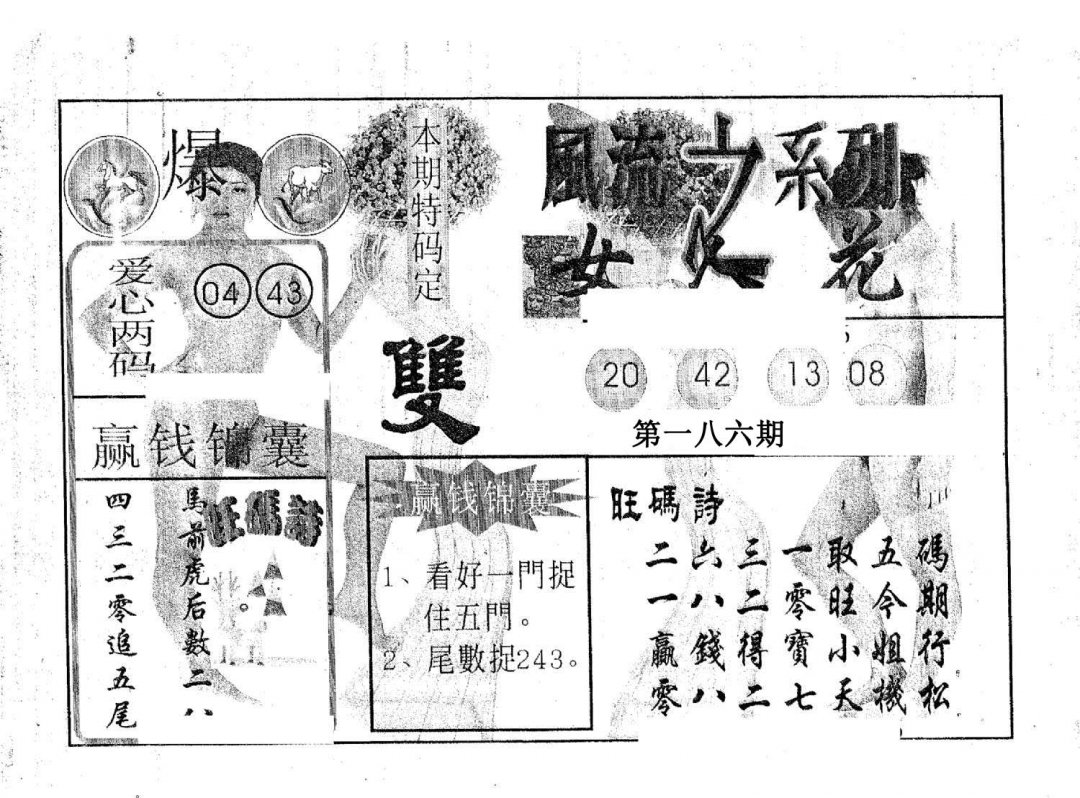 爆
本期特码定
雙
風流之系列
女人花
爱心两码
04 43
20 42 13 08
第一八六期
赢钱锦囊
旺碼詩
馬前虎后數二八
四三二零追五尾
赢钱锦囊
1、看好一門捉
住五門。
2、尾數捉243。
旺碼詩
二六三一取五碼
一八二零旺今期
贏錢得寶小姐行
零八二七天機松